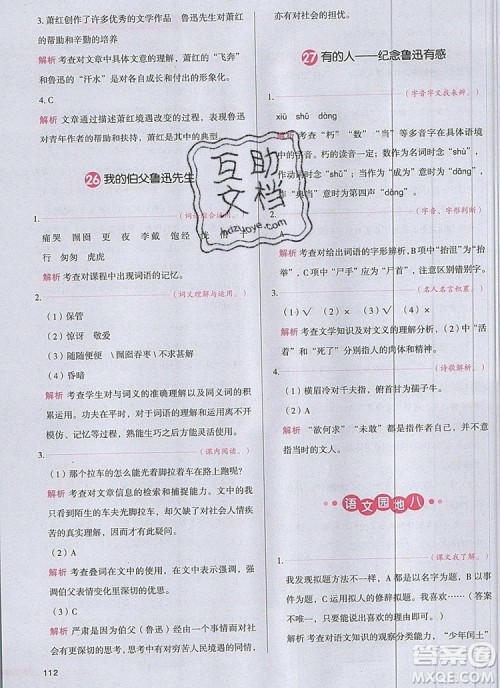 3. 萧红创作了许多优秀的文学作品 鲁迅先生对萧红
的帮助和辛勤的培养
解析 考查对文中具体文意的理解，萧红的“飞奔”
和鲁迅的“汗水”是对其行为的具象化。
4. C
解析 文章通过描写萧红境遇改变的过程，表现鲁迅
对青年作者的帮助和扶持，萧红是其中的典型
26 我的伯父鲁迅先生
1.
痛哭 囫囵 更 夜 李戴 饱经
行 匆匆 虎虎
解析 考查对课程中出现词语的记忆。
2.
（词义理解与运用。）
（1）保管
（2）惊讶 敬爱
（3）随随便便 \ 囫囵吞枣 \ 不求甚解
（4）昏暗
解析 考查学生对与词义的准确理解以及同义词的积
累运用。功夫在平时，对于写作需要不断的阅读、模
仿、记忆等过程。
3.
（课内阅读。）
（1）那个拉车的怎么能光着脚拉着车在路上跑呢？
解析 考查对文章信息的检索和捕捉能力。文中的我
感到陌生的车夫光脚拉车，却发现大家都习以为常。
（2）深深地
解析 考查叠词在文中的词语表达效果，叠词可以增
强伯父表情变化里所体现的更深切的情感。
（3）A
解析 严肃是因为伯父（鲁迅）的对当时社会环境的
厌恶和思考，而叹息是对人们身处同一环境的同情，
112
亦有对社会的担忧。
27 有的人——纪念鲁迅有感
1.
（字音字义我来辨。）
xiǔ shǔ dàng
解析 考查“朽”“数”“当”等多音字在具体语境
中的发音。朽的读音一定；数作为名词时念“shù”，
作为动词时念“shǔ”；当作为动词时念“dāng”，作
为“当作，典当”意义时为第四声“dàng”。
2.
（字音、字形判断）
解析 考查对给出词语的字形辨析。B中“抬沮”为“抬
举”，C中“尸手”应为“尸首”，D中“情愿”为“情
愿”。
3.
（名人名言积累。）
（1）√ （2）× （3）√ （4）√
解析 考查文学知识及对文义的理解分析，（2）中“活
着”和“死了”分别指人的肉体和精神。
4.
（诗歌解析。）
（1）横眉冷对千夫指，俯首甘为孺子牛。
（2）C
解析 “欲何求”“未敢”都是指自己的意愿，并不
是有意指责当时的文人。
语文园地八
1.
（课文我了解。）
我发现加点部分都运用了比喻的修辞手法。我还发现
其中“是”的作用是引出比喻的事物。（此题答案不
唯一，选择自己喜欢和理由即可，言之有理即可）
解析 考查对语文知识的观察分析能力，“少年闰土”
互助文档
hdzuoye.com
答案圈
MXQE.COM